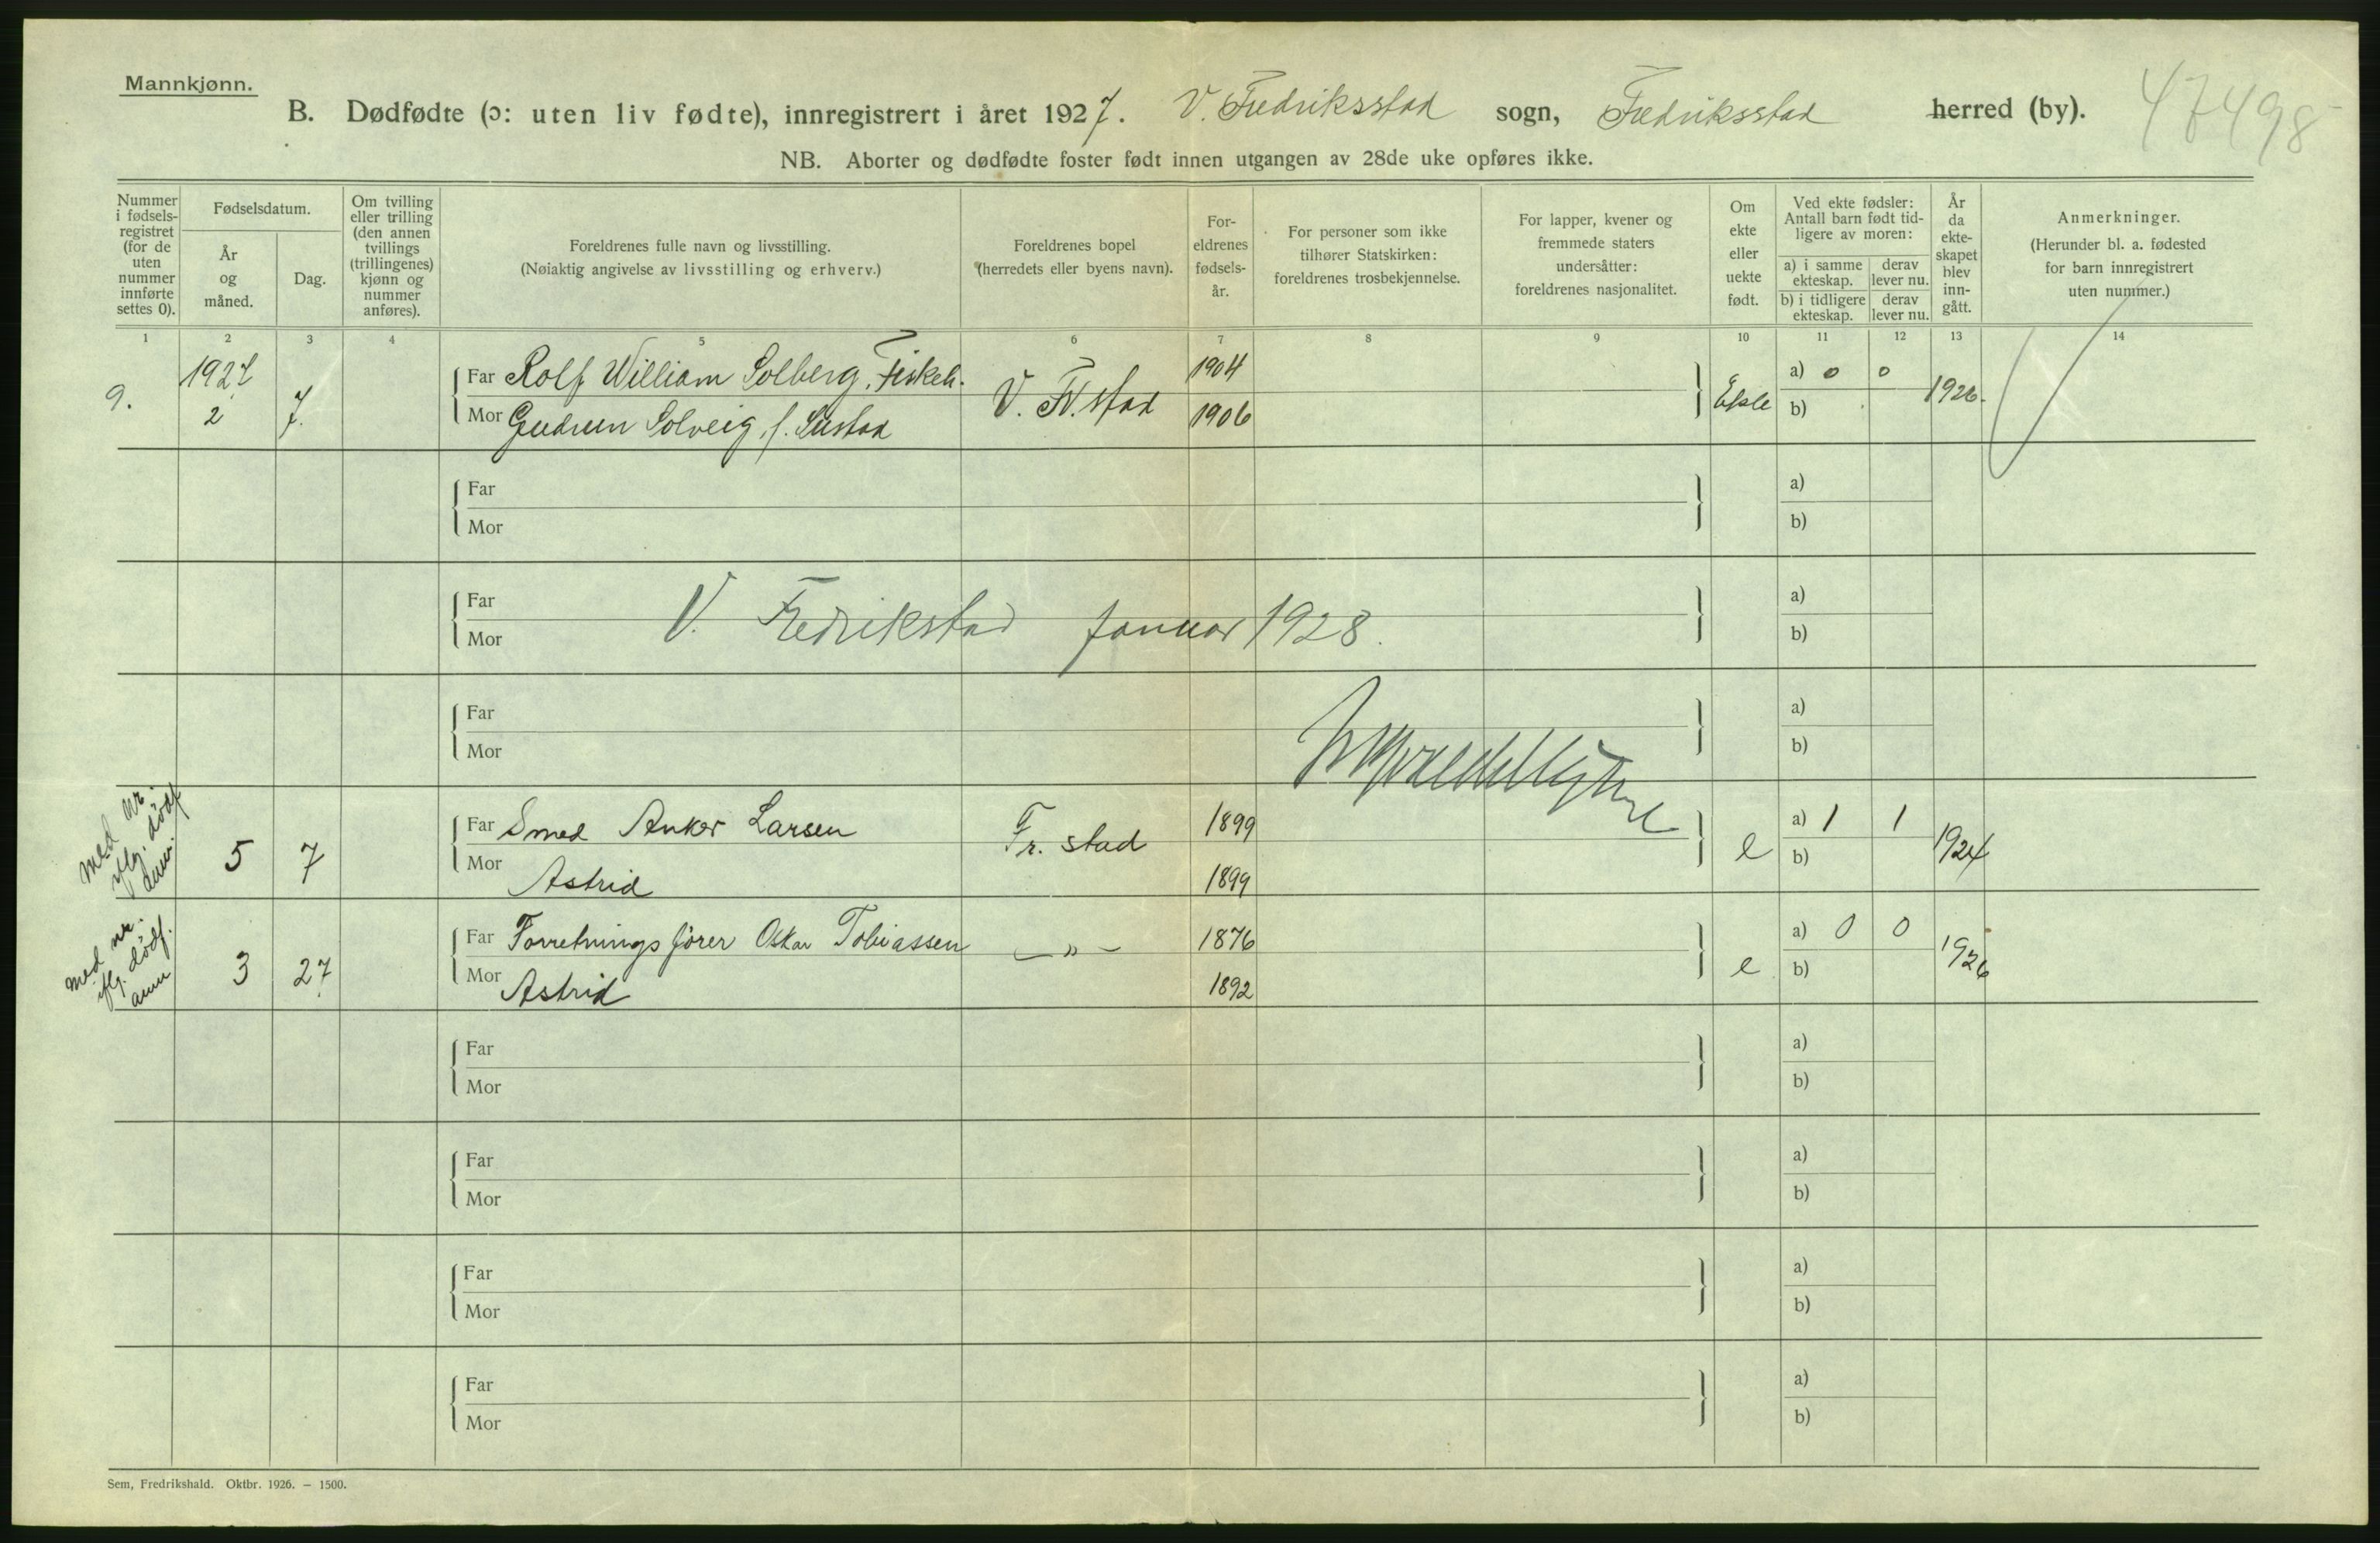 Mannkjønn.
B. Dødfødte (ɔ: uten liv fødte), innregistrert i året 1927. V. Fredriksstad sogn, Fredriksstad herred (by). 47498
NB. Aborter og dødfødte foster født innen utgangen av 28de uke opføres ikke.
Nummer
i fødsels-
registret
(for de
uten
nummer
innførte
settes 0).
Fødselsdatum.
År
og
måned.
Dag.
Om tvilling
eller trilling
(den annen
tvillings
(trillingenes)
kjønn og
nummer
anføres).
Foreldrenes fulle navn og livsstilling.
(Nøiaktig angivelse av livsstilling og erhverv.)
Foreldrenes bopel
(herredets eller byens navn).
For-
eldrenes
fødsels-
år.
For personer som ikke
tilhører Statskirken:
foreldrenes trosbekjennelse.
For lapper, kvener og
fremmede staters
undersåtter:
foreldrenes nasjonalitet.
Om
ekte
eller
uekte
født.
Ved ekte fødsler:
Antall barn født tid-
ligere av moren:
a) i samme
ekteskap.
derav
lever nu.
b) i tidligere
ekteskap.
derav
lever nu.
År
da
ekte-
skapet
blev
inn-
gått.
Anmerkninger.
(Herunder bl. a. fødested
for barn innregistrert
uten nummer.)
1 2 3 4 5 6 7 8 9 10 11 12 13 14
9. 1927 2 7. Far Rolf William Solberg, Fiskeh. V. Fr.stad 1904 Ekte a) 0 0 1926.
Mor Gudrun Solveig, f. Sustad 1906 b)
Far a)
Mor b)
Far a)
V. Fredrikstad Januar 1928.
Mor b)
Far a)
Mor b)
med nr.
iflg. dødf.
anm.
5 7 Far Smed Anker Larsen Fr. stad 1899 e a) 1 1 1924
Mor Astrid 1899 b)
med nr.
iflg. dødf.
anm
3 27 Far Forretningsfører Oskar Tobiassen — " — 1876 e a) 0 0 1926
Mor Astrid 1892 b)
Far a)
Mor b)
Far a)
Mor b)
Far a)
Mor b)
Far a)
Mor b)
Sem, Fredrikshald. Oktbr. 1926. — 1500.